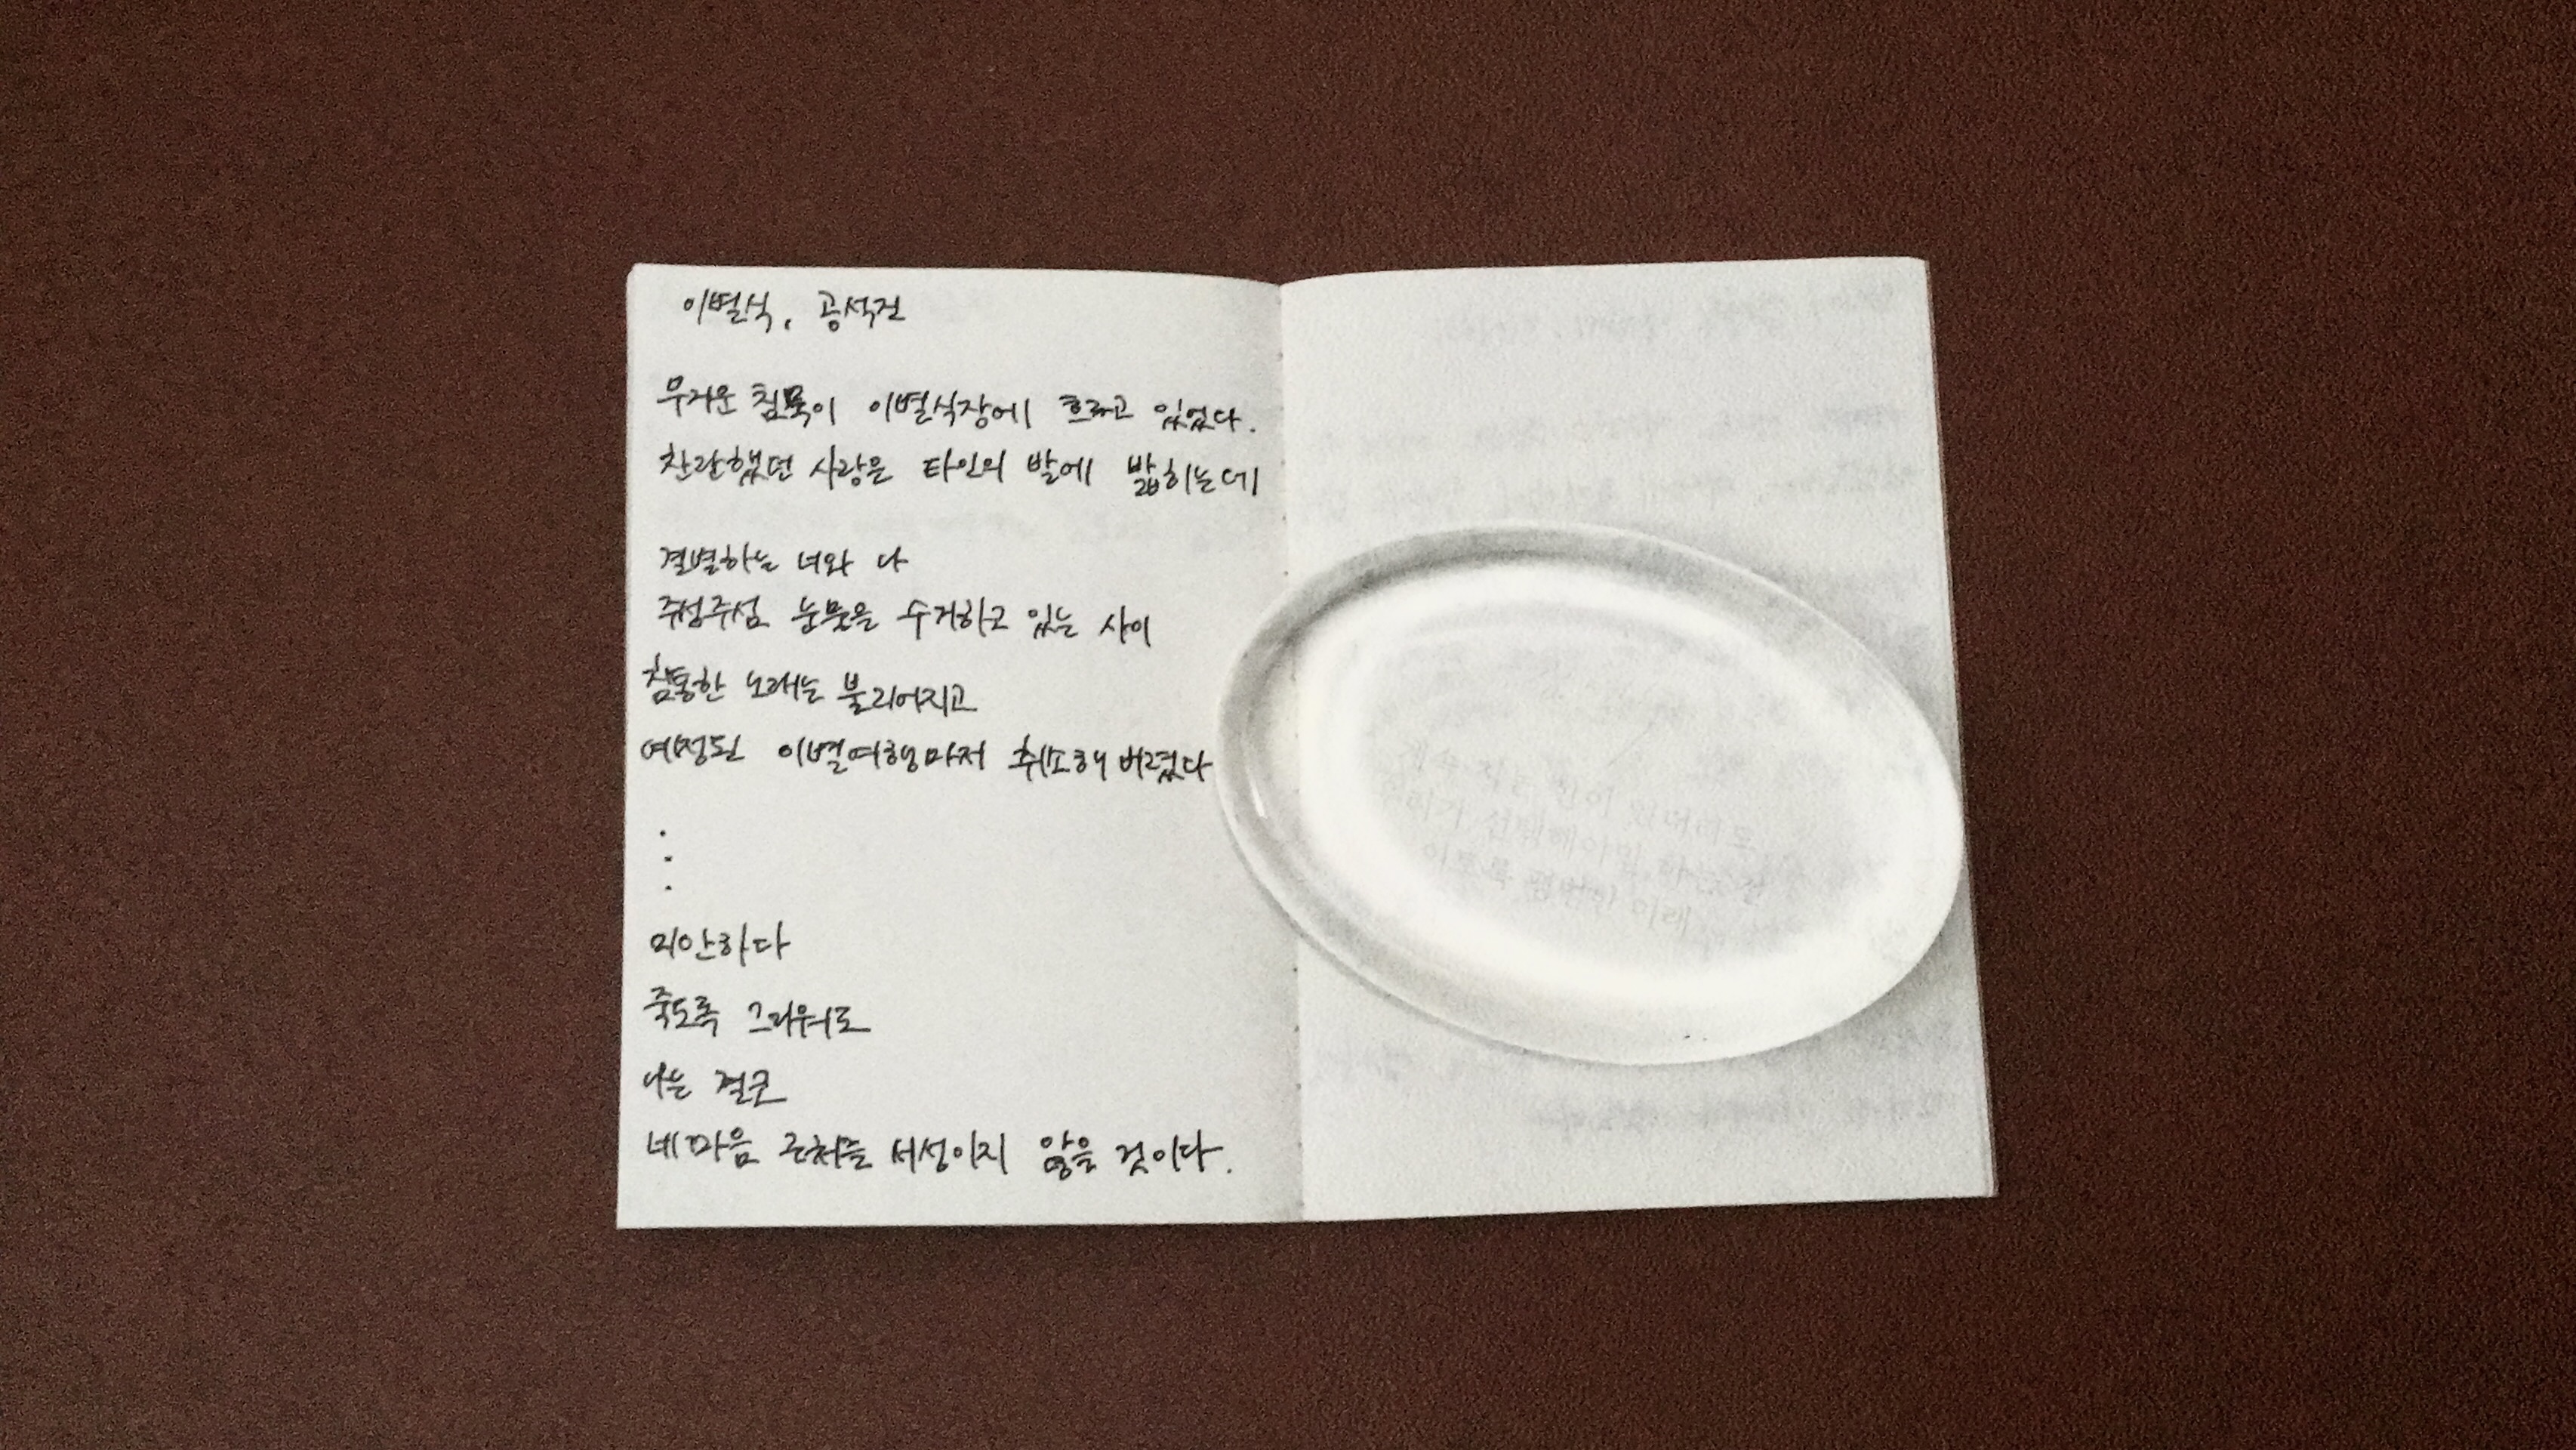 이별식, 공석진
무거운 침묵이 이별식장에 흐르고 있었다.
찬란했던 사랑은 타인의 발에 밟히는데
결별하는 너와 나
주섬주섬 눈물을 수거하고 있는 사이
침통한 노래는 불리어지고
예정된 이별여행마저 취소해 버렸다
⋮
미안하다
죽도록 그리워도
나는 결코
네 마음 근처를 서성이지 않을 것이다.